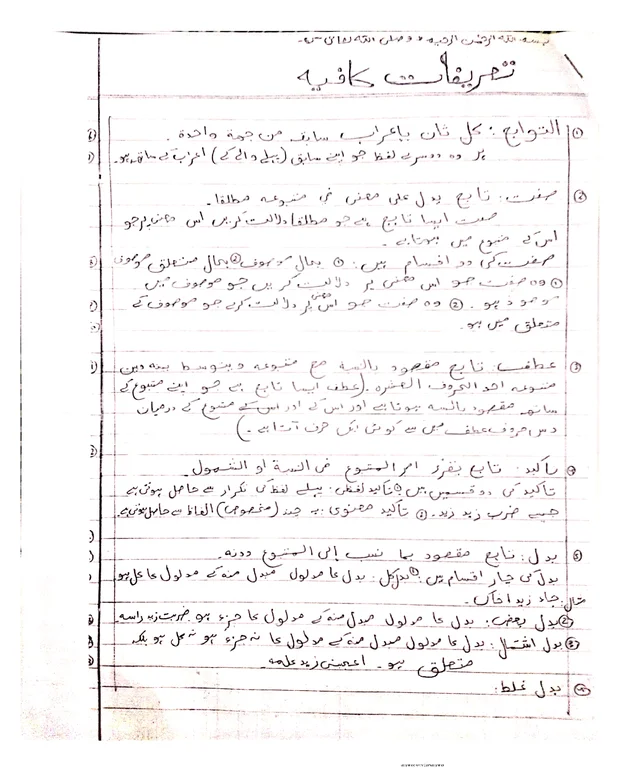 بسم الله الرحمن الرحيم وصلى الله تعالى
١
تعریفات کافیہ
① التوابع: کل ثان بإعراب سابقہ من جهة واحدة.
ہر وہ دوسرے لفظ جو اپنے سابق (پہلے والے کے) اعراب کے ساتھ ہو.
② صفت: تابع یدل علی معنی فی متبوعہ مطلقا.
صفت ایسا تابع ہے جو مطلقا دلالت کریں اس معنی پر جو
اس کے متبوع میں ہوتا ہے.
صفت کی دو اقسام ہیں: ① بحال موصوف ② بحال متعلق موصوف
① وہ صفت جو اس معنی پر دلالت کریں جو موصوف میں
موجود ہو. ② وہ صفت جو اس معنی پر دلالت کرے جو موصوف کے
متعلق میں ہو.
③ عطف: تابع مقصود بالنسبة مع متبوعه ویتوسط بینه وبین
متبوعه احد الحروف العشرة. (عطف ایسا تابع ہے جو اپنے متبوع کے
ساتھ مقصود بالنسبة ہوتا ہے اور اس کے اور اس کے متبوع کے درمیان
دس حروف عطف میں سے کوئی ایک حرف آتا ہے.)
④ تأکید: تابع یقرر امر المتبوع فی النسبة او الشمول.
تأکید کی دو قسمیں ہیں ① تأکید لفظی: پہلے لفظ کی تکرار سے حاصل ہوتی ہے
جیسے ضرب زید زید. ② تأکید معنوی: یہ چند (مخصوص) الفاظ سے حاصل ہوتی ہے.
⑤ بدل: تابع مقصود بما نسب إلى المتبوع دونه.
بدل کی چار اقسام ہیں: ① بدل کل: بدل کا مدلول مبدل منہ کے مدلول کا کل ہو
مثال: جاء زید اخاک.
② بدل بعض: بدل کا مدلول مبدل منہ کے مدلول کا جزء ہو ضربت زید راسه
③ بدل اشتمال: بدل کا مدلول مبدل منہ کے مدلول کا نہ جزء ہو نہ کل ہو بلکہ
متعلق ہو. اعجبنی زید علمه.
④ بدل غلط: